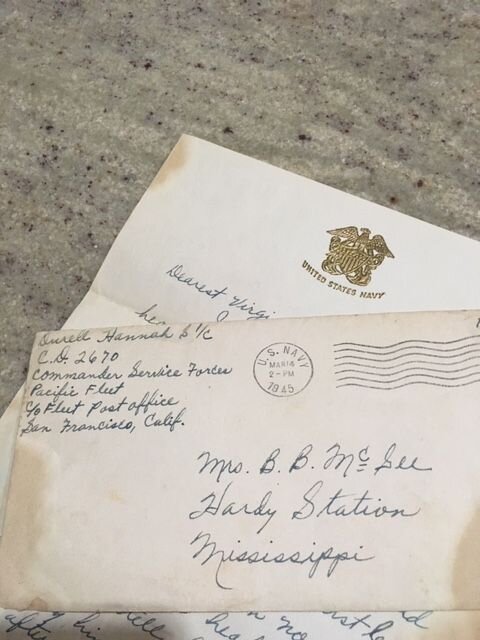 UNITED STATES NAVY
Dearest Virgi
Durell Hannah S 1/c
C.D. 2670
Commander Service Forces
Pacific Fleet
c/o Fleet Post office
San Francisco, Calif.
U.S. NAVY
MAR 14
2-PM
1945
Mrs. B. B. McGee
Hardy Station
Mississippi